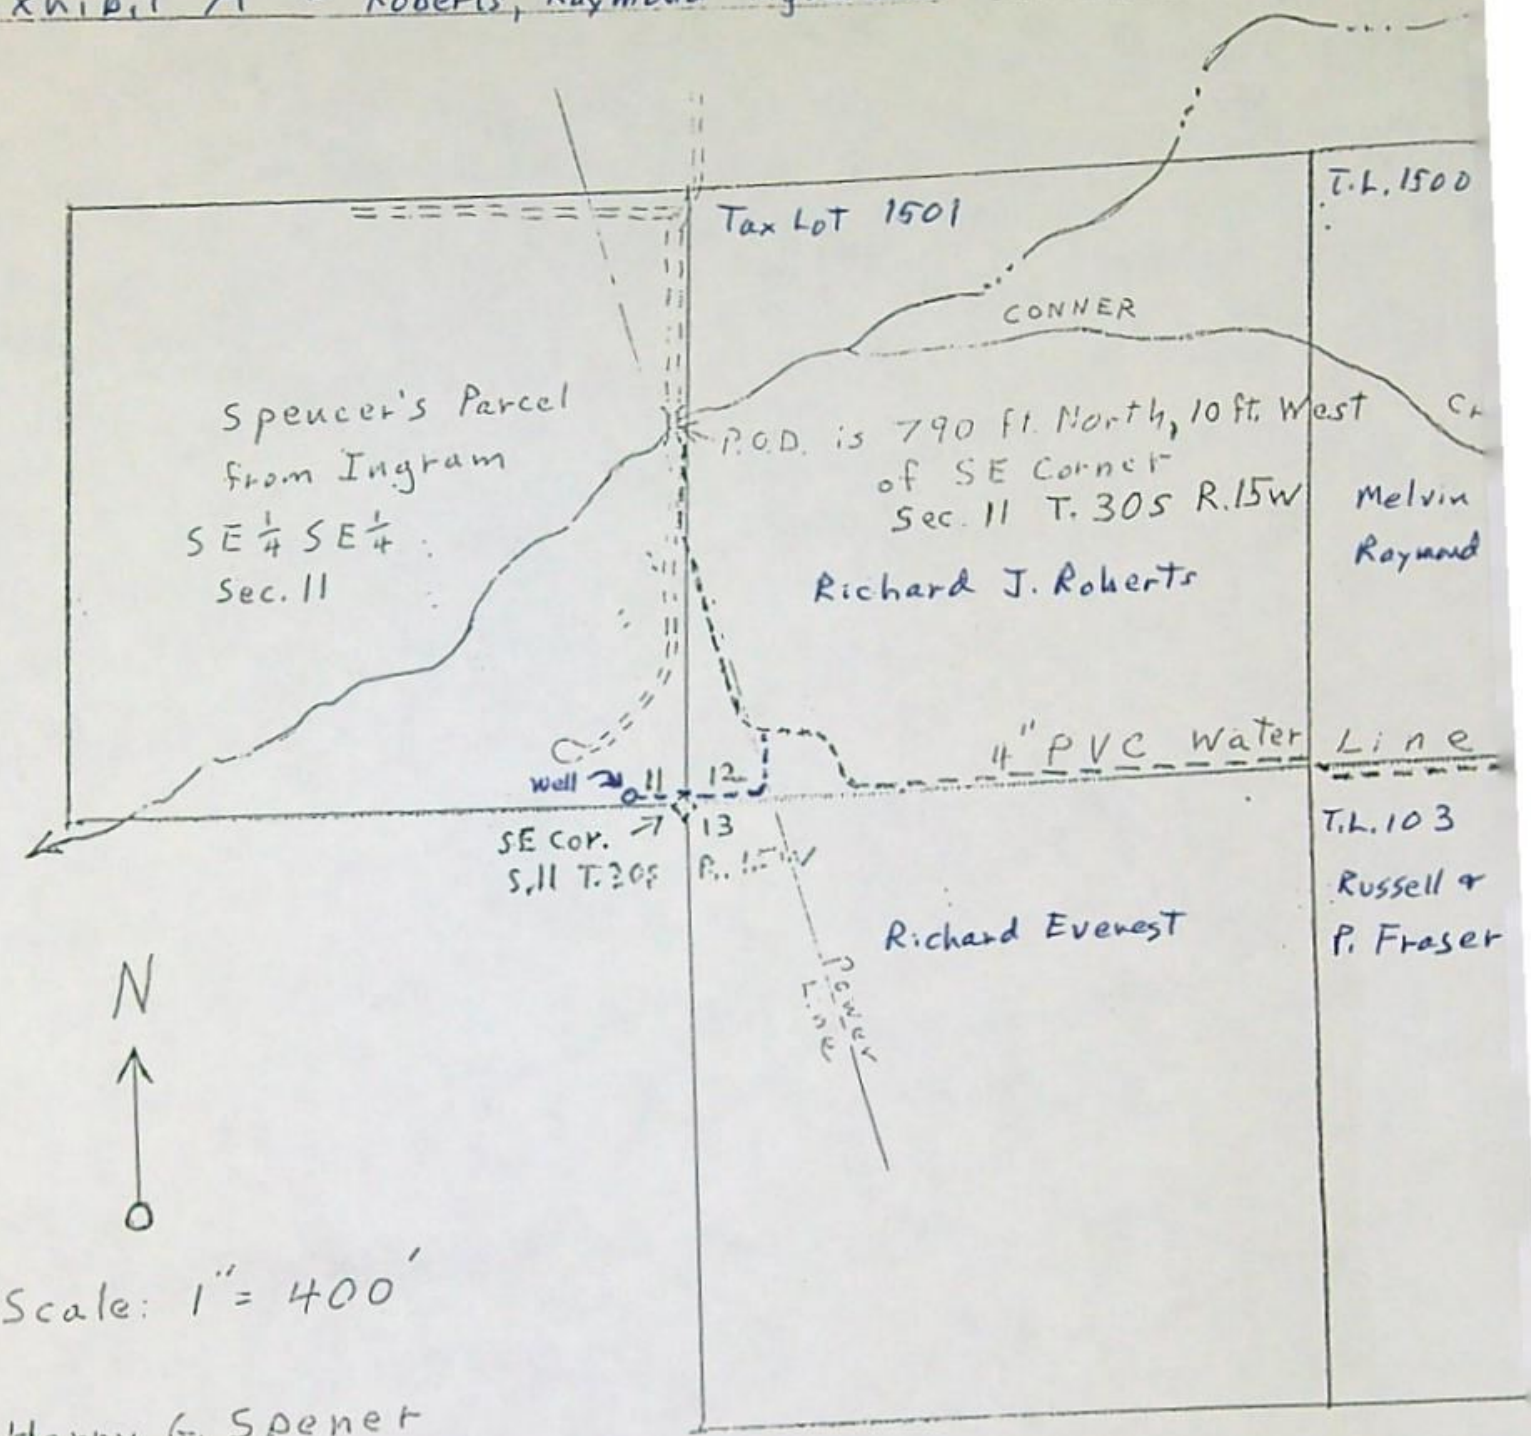 Roberts,
Tax Lot 1501
T.L. 1500
CONNER
Spencer's Parcel
from Ingram
SE 1/4 SE 1/4
Sec. 11
P.O.D. is 790 ft. North, 10 ft. West
of SE Corner
Sec. 11 T. 30S R. 15W
Melvin
Raymond
Richard J. Roberts
4" PVC Water Line
Well
11
12
13
SE Cor.
S.11 T.30S R. 15W
T.L. 103
Russell &
P. Fraser
Richard Everest
Power
Line
N
Scale: 1" = 400'
Harry G. Spener